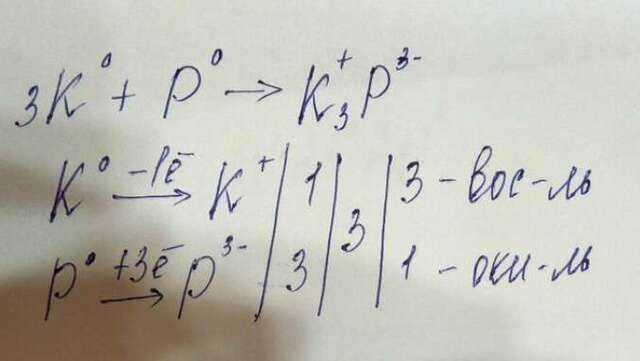 3K⁰ + P⁰ → K₃⁺P³⁻
K⁰ −1ē → K⁺ | 1 | 3 | 3 - вос-ль
P⁰ +3ē → P³⁻ | 3 | 1 - оки-ль